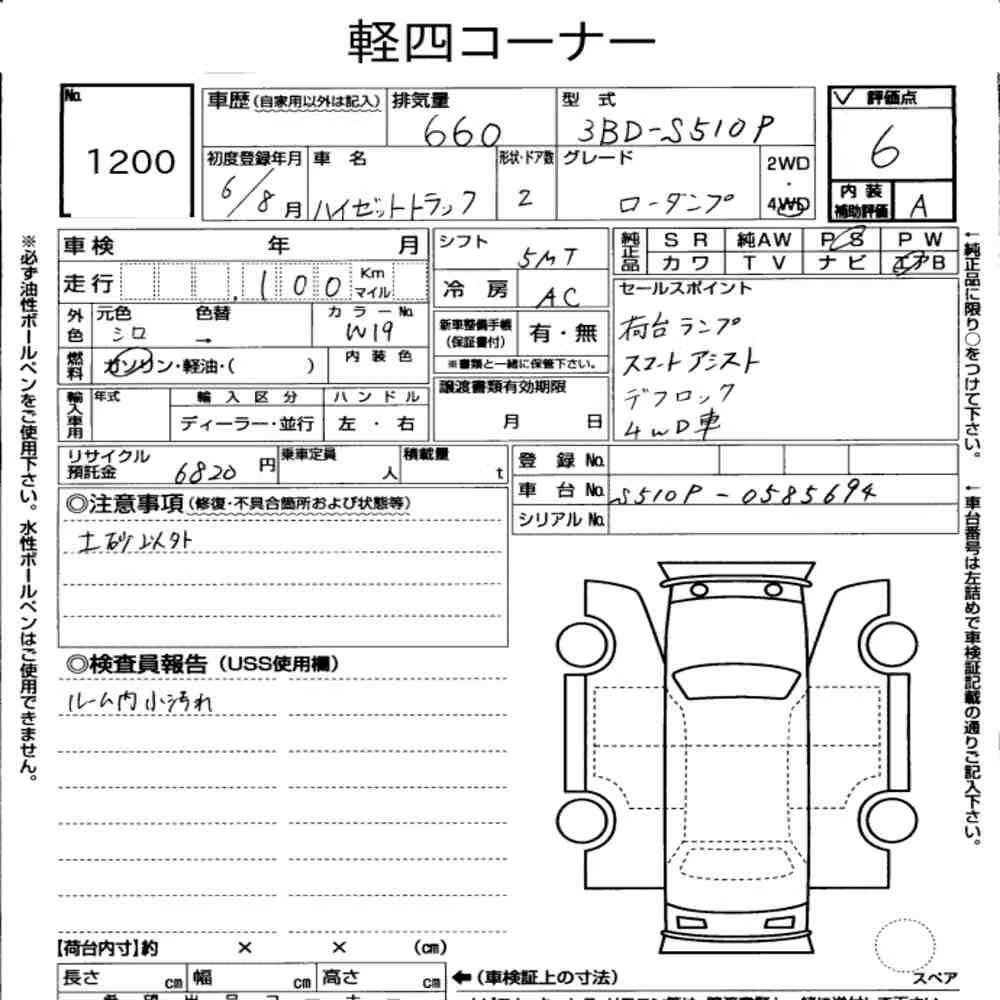 軽四コーナー
No. 1200
車歴 (自家用以外は記入) 排気量 660
型 式 3BD-S510P
評価点 6
内装補助評価 A
初度登録年月 6/8月
車 名 ハイゼットトラック
形状・ドア数 2
グレード ローダンプ
2WD・4WD
車検 年 月
走行 100 Km マイル
シフト 5MT
冷房 AC
純正品 SR 純AW PS PW
カワ TV ナビ エアB
外色 元色 シロ 色替 → カラーNo. W19
燃料 ガソリン・軽油・( ) 内装色
新車整備手帳(保証書付) 有・無
※書類と一緒に保管下さい。
セールスポイント
荷台ランプ
スマートアシスト
デフロック
4WD車
輸入車用 年式 輸入区分 ハンドル
ディーラー・並行 左・右
譲渡書類有効期限
月 日
リサイクル預託金 6820円 乗車定員 人 積載量 t
登録No.
車台No. S510P-0585694
シリアルNo.
◎注意事項 (修復・不具合箇所および状態等)
土砂以外
◎検査員報告 (USS使用欄)
ルーム内小汚れ
【荷台内寸】約 × × (cm)
長さ cm 幅 cm 高さ cm ←(車検証上の寸法)
スペア
※必ず油性ボールペンをご使用下さい。水性ボールペンはご使用できません。
←純正品に限り○をつけて下さい。
←車台番号は左詰めで車検証記載の通りご記入下さい。